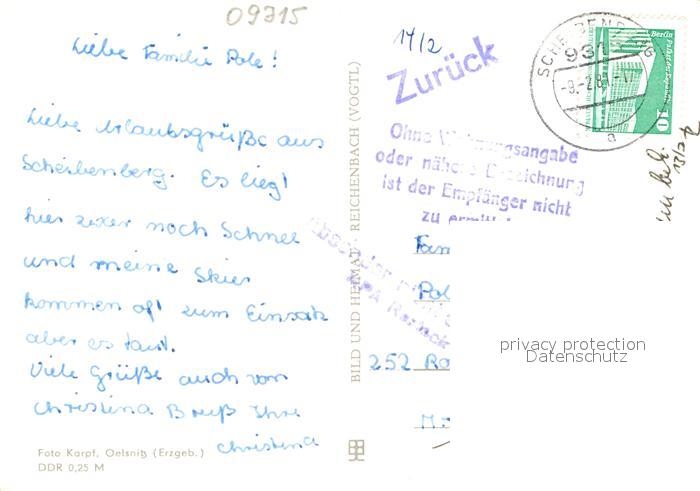 09315
Liebe Familie Pole!
Liebe Urlaubsgrüße aus
Scheibenberg. Es liegt
hier zwar noch Schnee
und meine Skier
kommen oft zum Einsatz
aber es taut.
Viele Grüße auch von
Christina Ihre
Christina
Foto Karpf, Oelsnitz (Erzgeb.)
DDR 0,25 M
BILD UND HEIMAT REICHENBACH (VOGTL)
14/2
Zurück
Ohne Wohnungsangabe
oder nähere Bezeichnung
ist der Empfänger nicht
zu
SCHEIBENBERG
931
-9.-2.81.-17
a
Berlin
10
13/2
Fam
Pol
252 Ro
privacy protection
Datenschutz